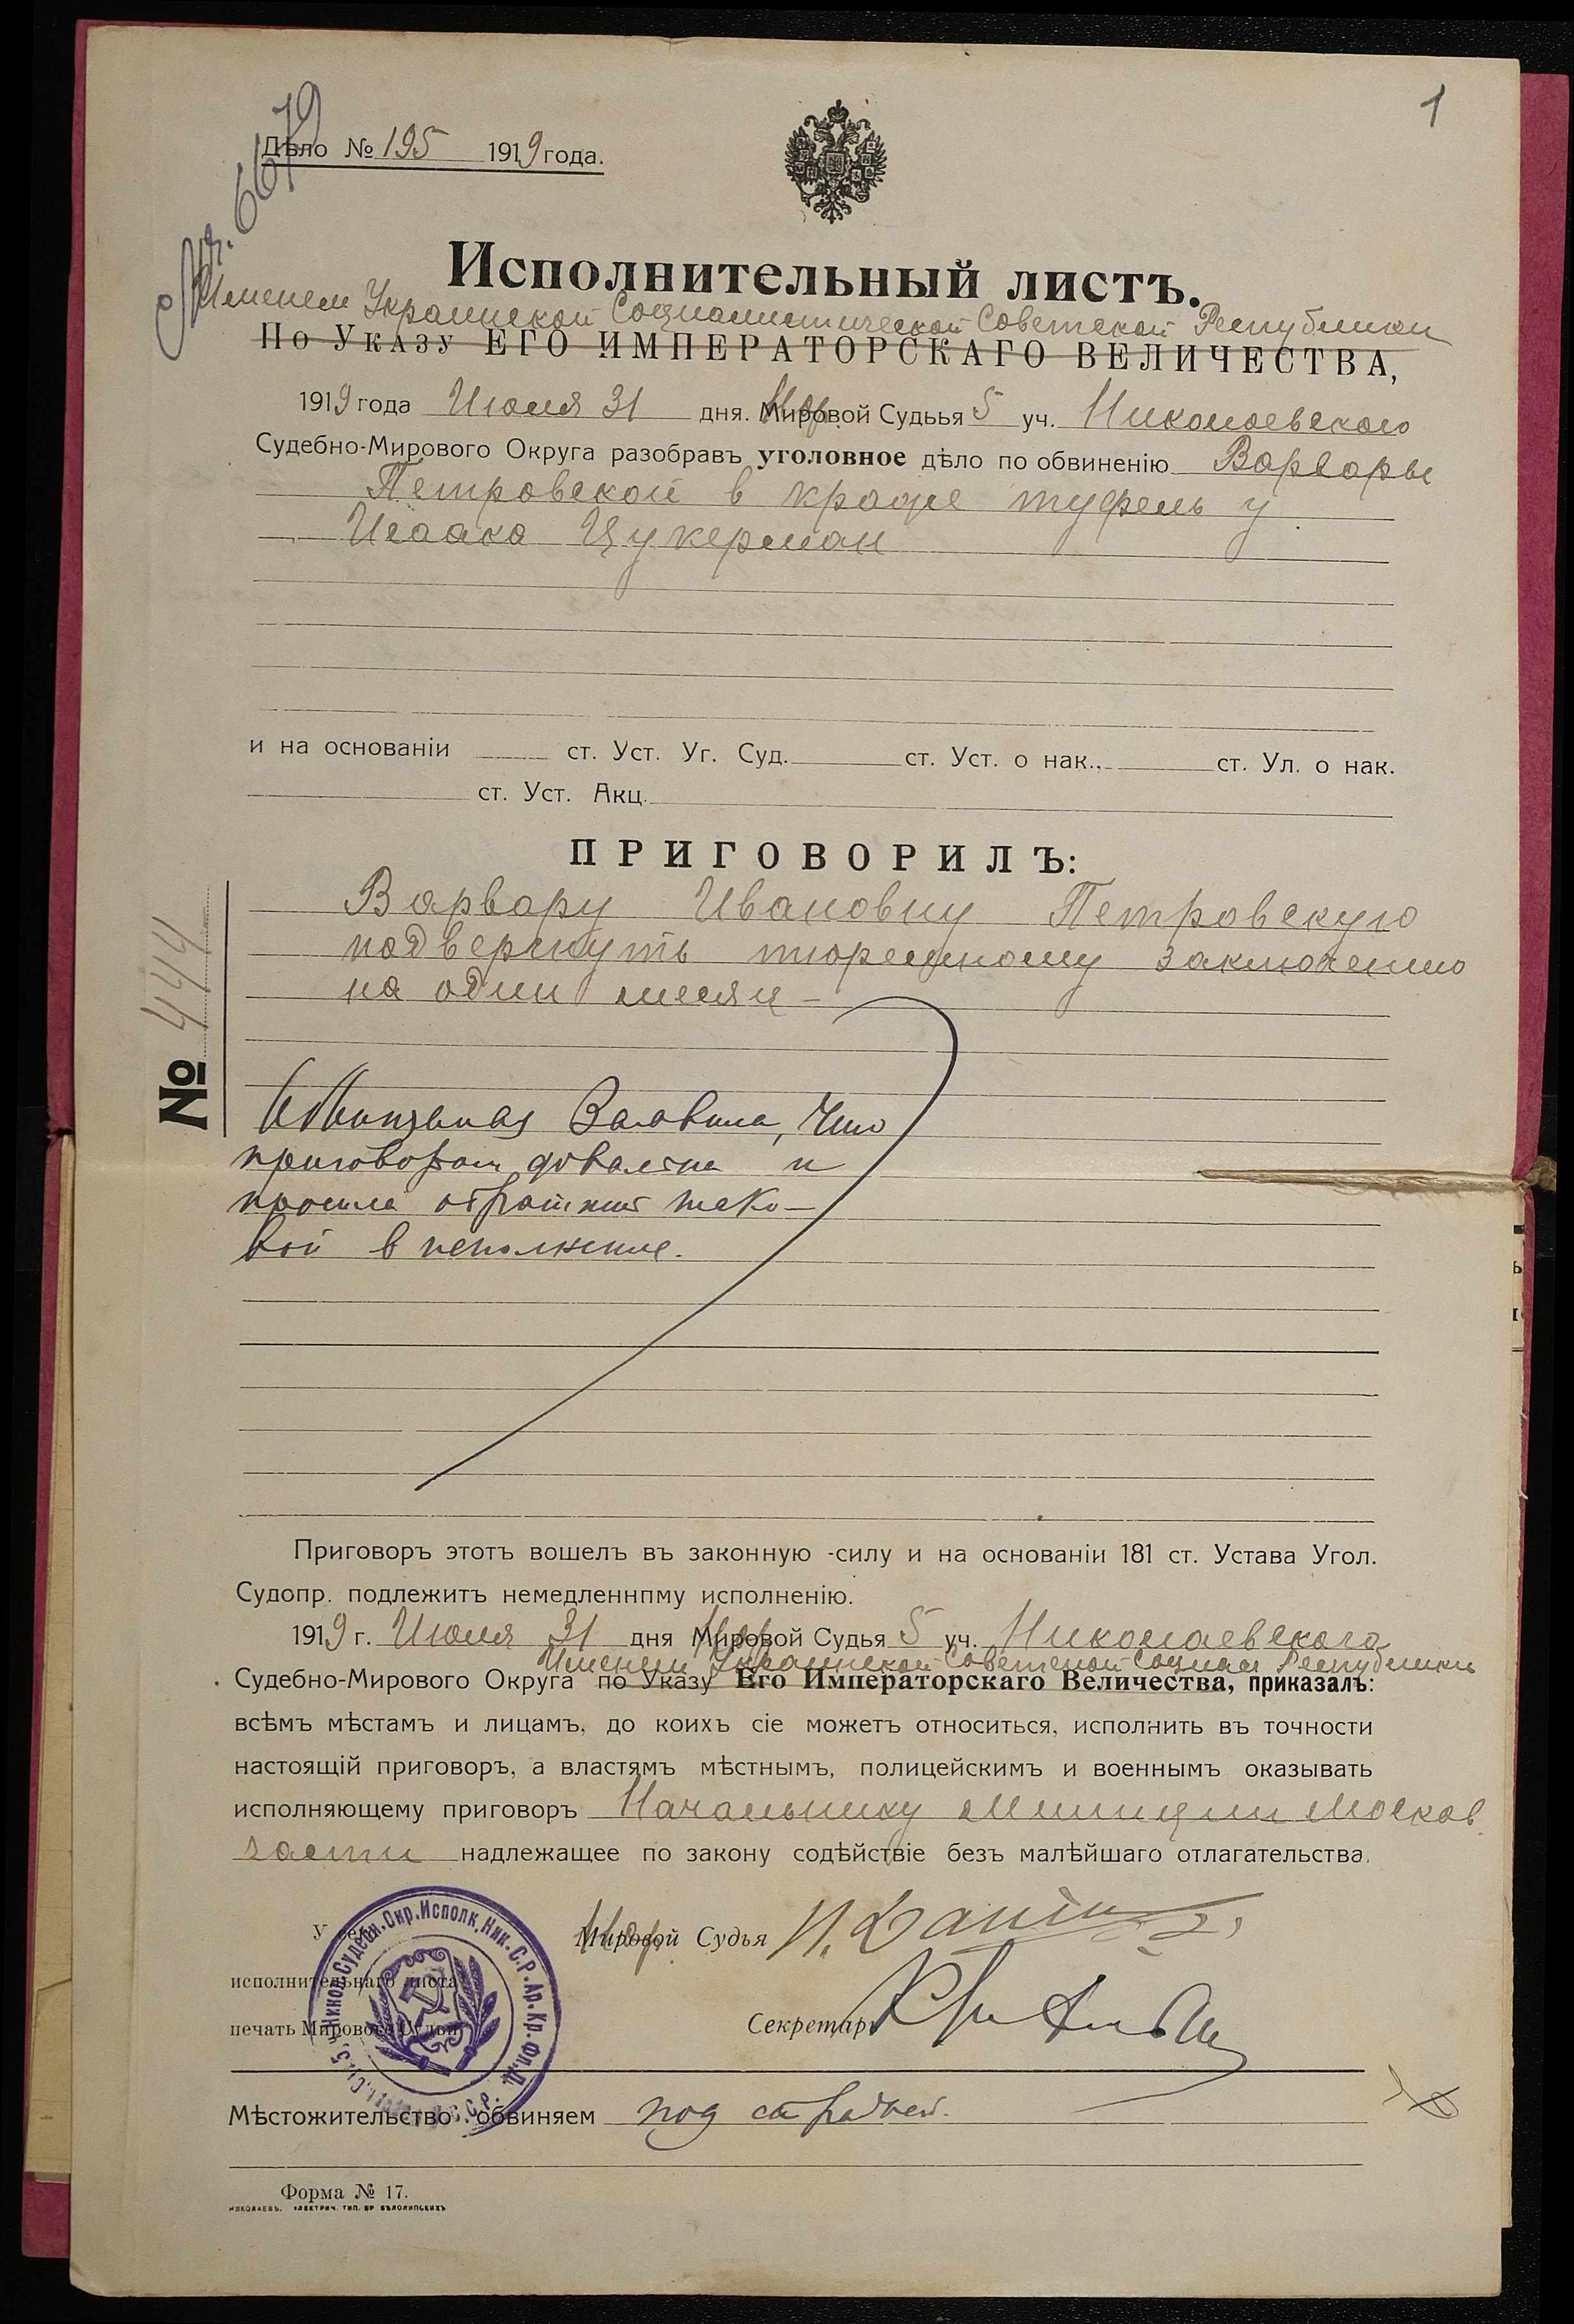 1
Дѣло № 195 1919 года.
6679
Исполнительный листъ.
Именем Украинской Социалистической Советской Республики
По Указу ЕГО ИМПЕРАТОРСКАГО ВЕЛИЧЕСТВА,
1919 года Июля 31 дня. Мировой Судьья 5 уч. Николаевского
Судебно-Мирового Округа разобравъ уголовное дѣло по обвиненію Варвары
Петровской в краже туфель у
Исаака Цукерман
и на основаніи ст. Уст. Уг. Суд. ст. Уст. о нак., ст. Ул. о нак.
ст. Уст. Акц.
ПРИГОВОРИЛЪ:
Варвару Ивановну Петровскую
подвергнуть тюремному заключению
на один месяц –
№ 444
Обвиняемая Заявила, что
приговором довольна и
просила обратить тако-
вой в исполнение.
Приговоръ этотъ вошелъ въ законную -силу и на основаніи 181 ст. Устава Угол.
Судопр. подлежитъ немедленнпму исполненію.
1919 г. Июля 31 дня Мировой Судья 5 уч. Николаевского
Именем Украинской Советской Социал Республики
Судебно-Мирового Округа по Указу Его Императорскаго Величества, приказалъ:
всѣмъ мѣстамъ и лицамъ, до коихъ сіе можетъ относиться, исполнить въ точности
настоящій приговоръ, а властямъ мѣстнымъ, полицейскимъ и военнымъ оказывать
исполняющему приговоръ Начальнику Милиции Москов
части надлежащее по закону содѣйствіе безъ малѣйшаго отлагательства.
Мировой Судья
исполнительнаго листа
печать Мирового Судьи
Секретарь
Судебн. Окр. Исполк. Ник. С. Р. Ар. Кр. Фл. Д.
Мѣстожительство обвиняем под стражей.
Форма № 17.
НИКОЛАЕВЪ. ЭЛЕКТРИЧ. ТИП. БР БѢЛОЛИПСКИХЪ